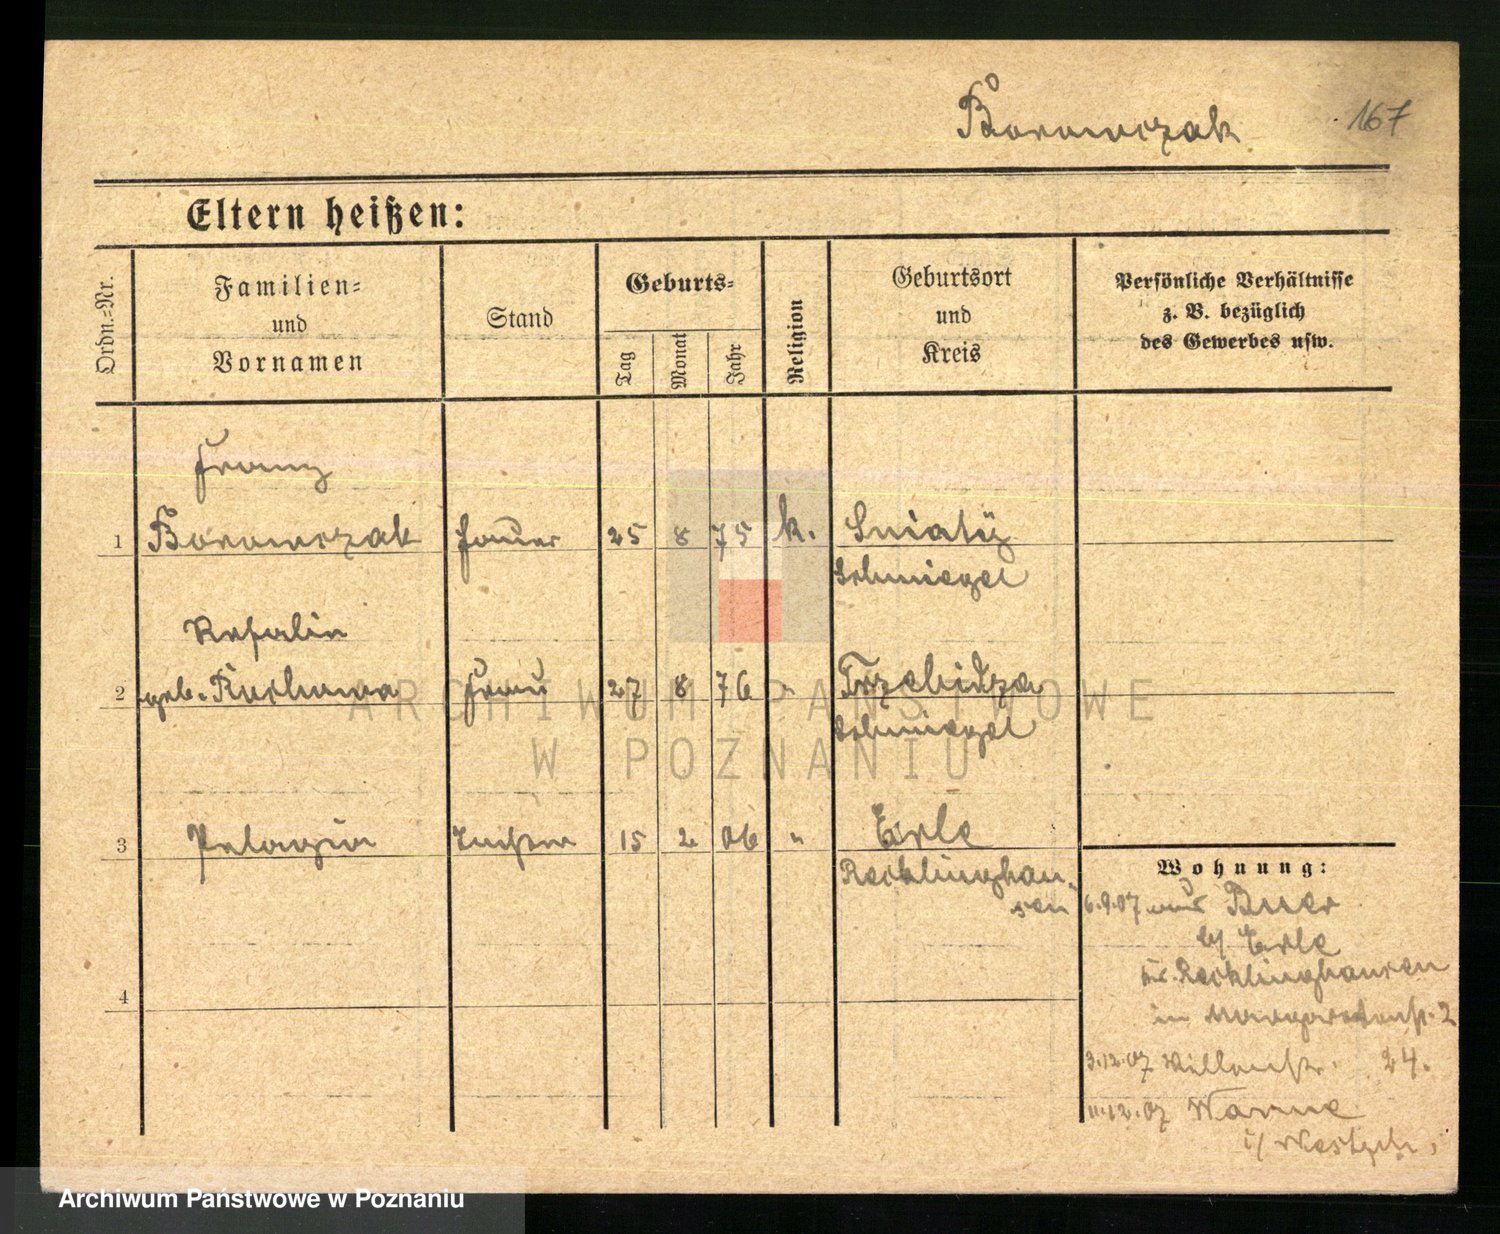 Borowczak
167
Eltern heißen:
Ordn.=Nr.
Familien=
und
Vornamen
Stand
Geburts=
Tag
Monat
Jahr
Religion
Geburtsort
und
Kreis
Persönliche Verhältnisse
z. B. bezüglich
des Gewerbes usw.
Franz
1 Borowczak 25 8 75 k. Sniaty
Schmiegel
Rosalie
2 geb. Frau 27 8 76 " Trzebidza
Schmiegel
3 Pelagia Tochter 15 2 06 " Erle
Recklinghau-
sen
Wohnung:
6.9.07 Buer
b/ Erle
Kr. Recklinghausen
in 2
3.12.07 24.
11.12.07 Wanne
i/ Westph.
4
ARCHIWUM PAŃSTWOWE
W POZNANIU
Archiwum Państwowe w Poznaniu